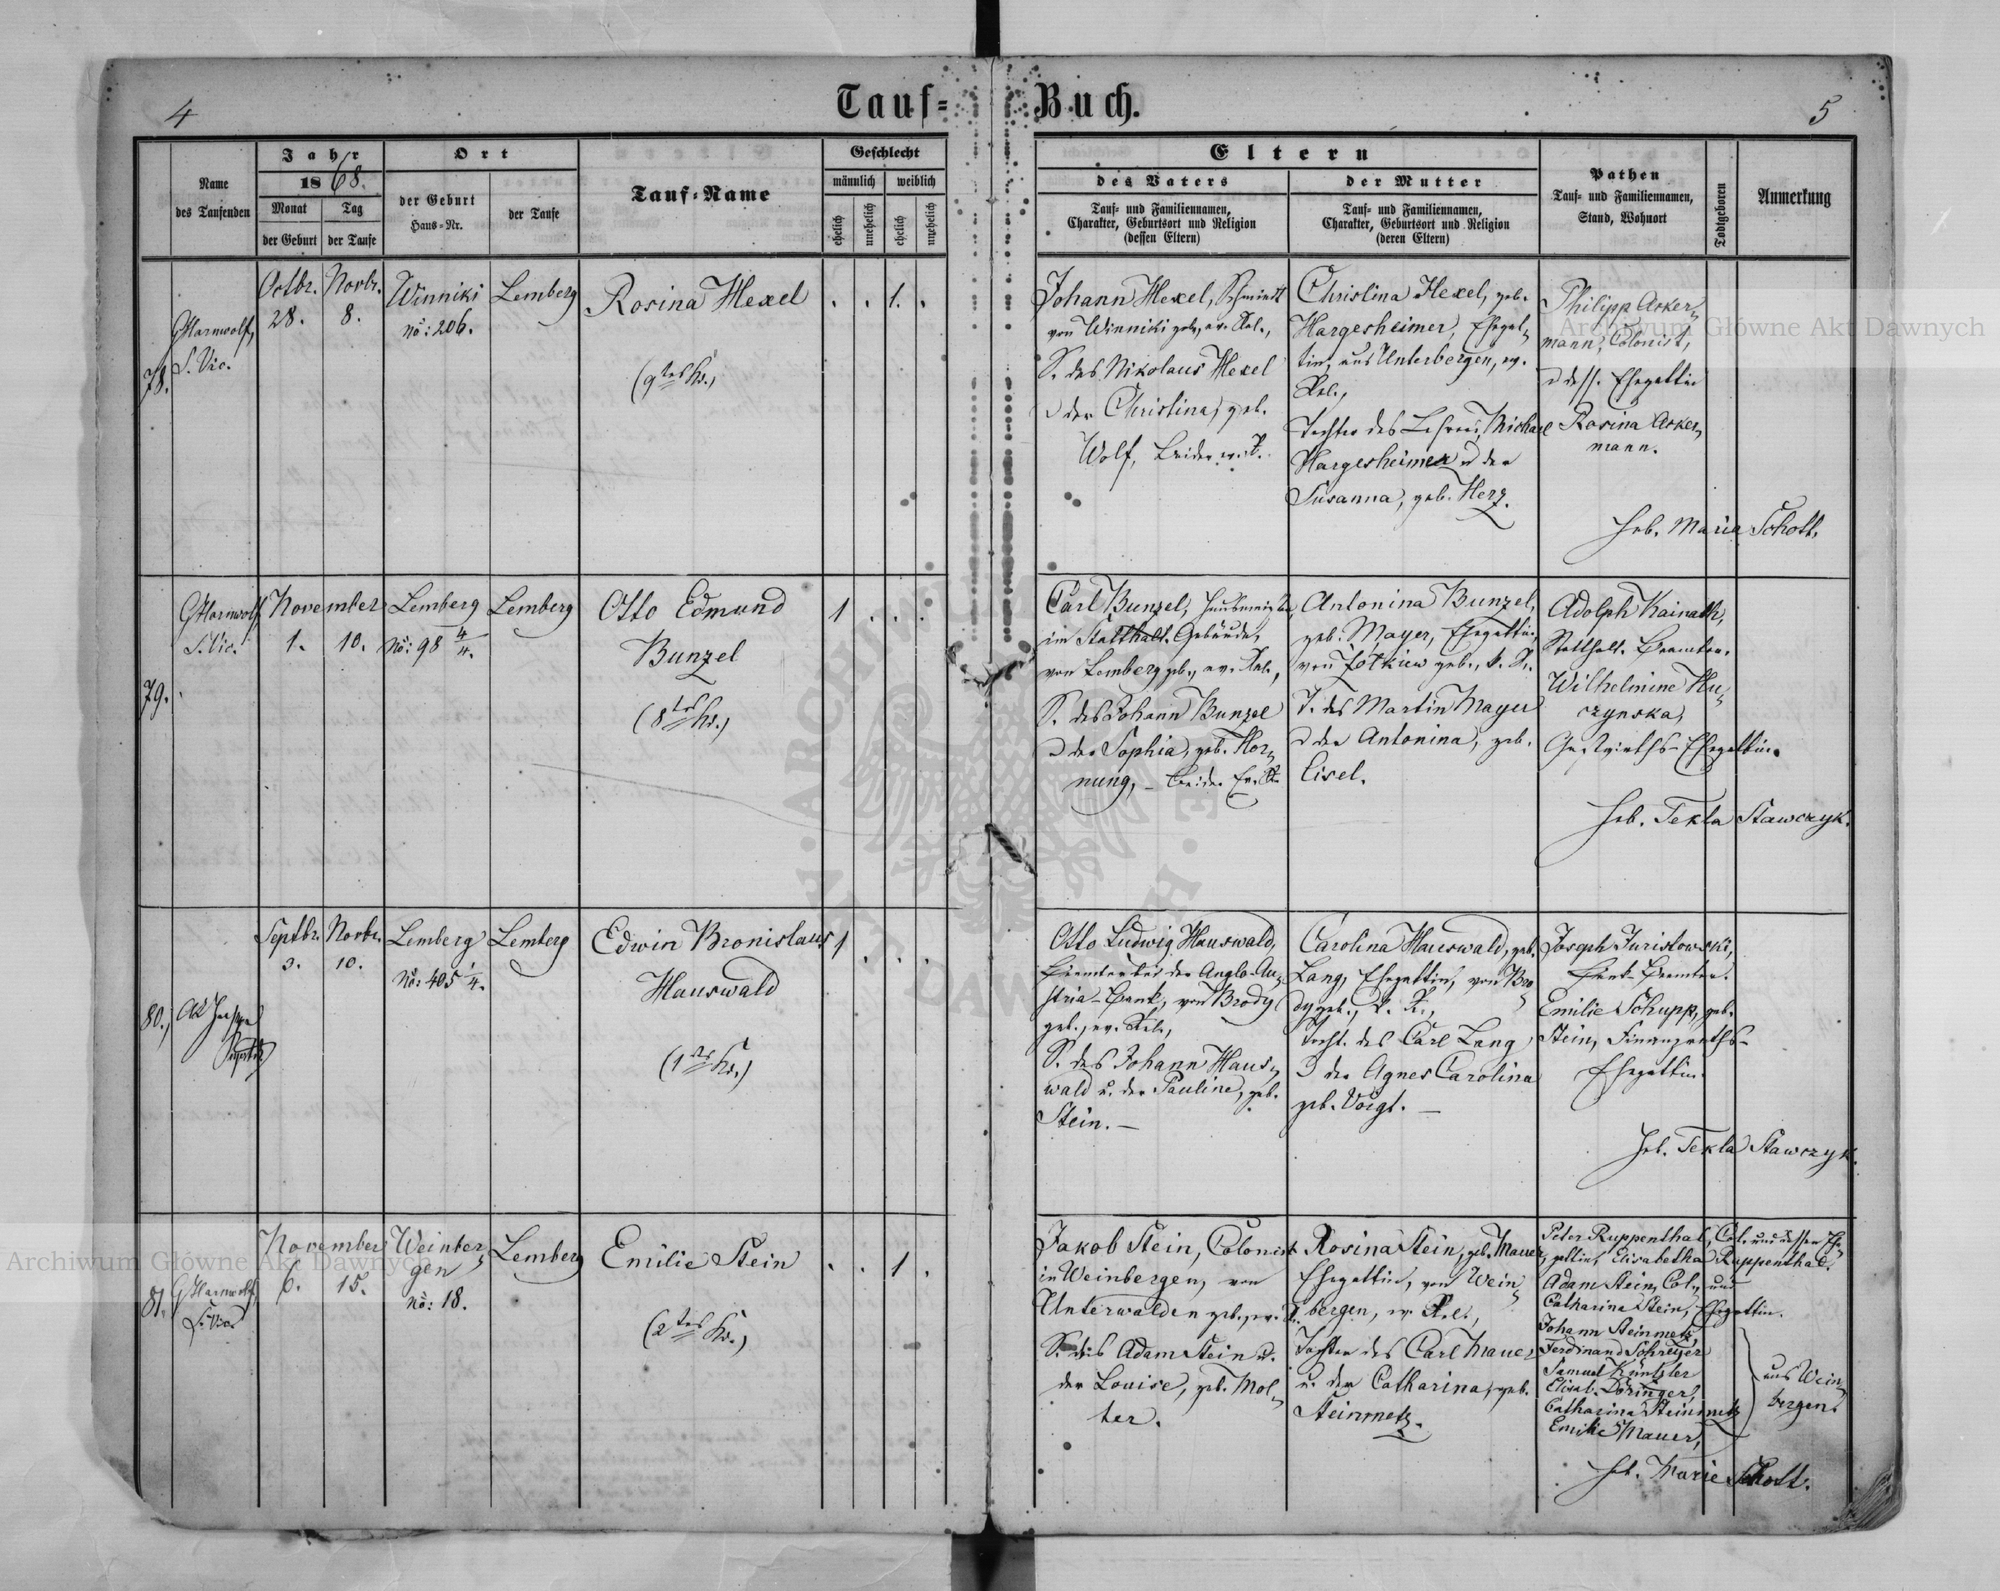 4
Tauf= Buch.
5
Name
des Taufenden
Jahr
1868.
Monat
der Geburt
Tag
der Taufe
Ort
der Geburt
Haus=Nr.
der Taufe
Tauf=Name
Geschlecht
männlich
weiblich
ehelich
unehelich
ehelich
unehelich
Eltern
des Vaters
Tauf= und Familiennamen,
Charakter, Geburtsort und Religion
(dessen Eltern)
der Mutter
Tauf= und Familiennamen,
Charakter, Geburtsort und Religion
(deren Eltern)
Pathen
Tauf= und Familiennamen,
Stand, Wohnort
Todtgeboren
Anmerkung
78.
S. Vic.
Octbr.
28.
Novbr.
8.
Winniki
No: 206.
Lemberg
Rosina Hexel
(9tes K.)
. . 1. .
Johann Hexel, Schmidt
von Winniki geb., ev. Rel.,
S. des Nikolaus Hexel
u der Christina, geb.
Wolf, beide ev. R.
Christina Hexel, geb.
Hargesheimer, Ehegat=
tin, aus Unterbergen, ev.
Rel.,
Tochter des Lehrers Michael
Hargesheimer u der
Susanna, geb. Herz.
Philipp Acker=
mann, Colonist,
u dess. Ehegattin
Rosina Acker=
mann.
Heb. Maria Schott.
79.
S. Vic.
November
1. 10.
Lemberg
No: 98 4/4.
Lemberg
Otto Edmund
Bunzel
(8tes K.)
1 . . .
Carl Bunzel, Hausmeister
im Statthalt. Gebäude,
von Lemberg geb., ev. Rel.,
S. des Johann Bunzel
u der Sophia, geb. Hor=
nung, – beide Ev. R.
Antonina Bunzel,
geb. Mayer, Ehegattin,
von Żołkiew geb., k. R.
T. des Martin Mayer
u der Antonina, geb.
Eisel.
Adolph Kainath,
Statthalt. Beamter.
Wilhelmine Hu=
czynska,
Gastwirths-Ehegattin.
Heb. Tekla Stawczyk.
80.
Septbr.
3.
Novbr.
10.
Lemberg
No: 405 1/4.
Lemberg
Edwin Bronislaus
Hauswald
(1tes K.)
1 . . .
Otto Ludwig Hauswald,
Beamter bei der Anglo-Au=
stria-Bank, von Brody
geb., ev. Rel.,
S. des Johann Haus=
wald u. der Pauline, geb.
Stein. –
Carolina Hauswald, geb.
Lang, Ehegattin, von Bro=
dy geb.,
Tocht. des Carl Lang
u der Agnes Carolina
geb. Voigt. –
Joseph Turislowski,
Bank-Beamter.
Emilie Schupp, geb.
Stein, Finanzraths-
Ehegattin.
Heb. Tekla Stawczyk.
81.
S. Vic.
November
6. 15.
Weinber=
gen
No: 18.
Lemberg
Emilie Stein
(2tes K.)
. . 1 .
Jakob Stein, Colonist
in Weinbergen, von
Unterwalden geb., ev. R.
S. des Adam Stein u.
der Louise, geb. Mol=
ter.
Rosina Stein, geb. Mauer,
Ehegattin, von Wein=
bergen, ev. Rel.,
Tochter des Carl Mauer
u. der Catharina, geb.
Steinmetz.
Peter Ruppenthal, Col. und dessen Ehe=
gattin, Elisabetha Ruppenthal.
Adam Stein, Col., und
Catharina Stein, Ehegattin.
Johann Steinmetz,
Ferdinand Schreyer
Samuel Küntzler
Elisab. Döringer,
Catharina Steinmetz
Emilie Mauer,
aus Wein=
bergen.
Heb. Marie Schott.
Archiwum Główne Akt Dawnych
Archiwum Główne Akt Dawnych